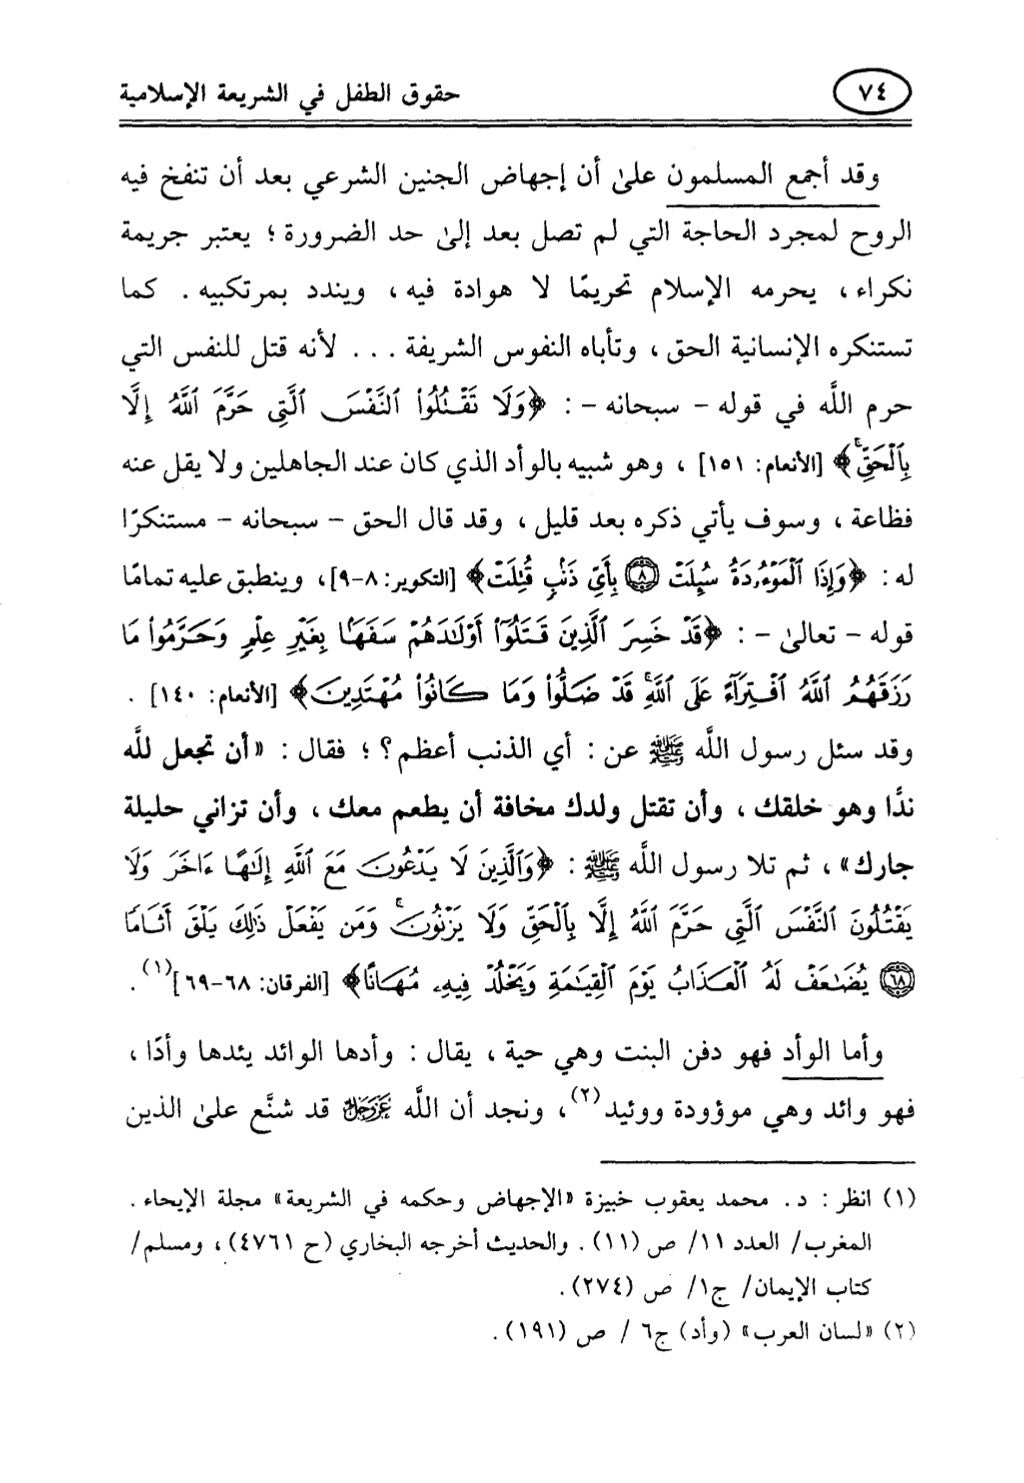 ٧٤
حقوق الطفل في الشريعة الإسلامية
وقد أجمع المسلمون على أن إجهاض الجنين الشرعي بعد أن تنفخ فيه
الروح لمجرد الحاجة التي لم تصل بعد إلى حد الضرورة؛ يعتبر جريمة
نكراء، يحرمه الإسلام تحريمًا لا هوادة فيه، ويندد بمرتكبيه. كما
تستنكره الإنسانية الحق، وتأباه النفوس الشريفة ... لأنه قتل للنفس التي
حرم اللَّه في قوله - سبحانه -: ﴿وَلَا تَقْتُلُوا۟ ٱلنَّفْسَ ٱلَّتِي حَرَّمَ ٱللَّهُ إِلَّا
بِٱلْحَقِّ ۚ﴾ [الأنعام: ١٥١]، وهو شبيه بالوأد الذي كان عند الجاهلين ولا يقل عنه
فظاعة، وسوف يأتي ذكره بعد قليل، وقد قال الحق - سبحانه - مستنكرًا
له: ﴿وَإِذَا ٱلْمَوْءُۥدَةُ سُئِلَتْ ٨ بِأَيِّ ذَنۢبٍ قُتِلَتْ﴾ [التكوير: ٨-٩]، وينطبق عليه تمامًا
قوله - تعالى -: ﴿قَدْ خَسِرَ ٱلَّذِينَ قَتَلُوٓا۟ أَوْلَٰدَهُمْ سَفَهَۢا بِغَيْرِ عِلْمٍ وَحَرَّمُوا۟ مَا
رَزَقَهُمُ ٱللَّهُ ٱفْتِرَآءً عَلَى ٱللَّهِ ۚ قَدْ ضَلُّوا۟ وَمَا كَانُوا۟ مُهْتَدِينَ﴾ [الأنعام: ١٤٠].
وقد سئل رسول اللَّه ﷺ عن: أي الذنب أعظم؟؛ فقال: «أن تجعل للَّه
ندًّا وهو خلقك، وأن تقتل ولدك مخافة أن يطعم معك، وأن تزاني حليلة
جارك»، ثم تلا رسول اللَّه ﷺ: ﴿وَٱلَّذِينَ لَا يَدْعُونَ مَعَ ٱللَّهِ إِلَٰهًا ءَاخَرَ وَلَا
يَقْتُلُونَ ٱلنَّفْسَ ٱلَّتِي حَرَّمَ ٱللَّهُ إِلَّا بِٱلْحَقِّ وَلَا يَزْنُونَ ۚ وَمَن يَفْعَلْ ذَٰلِكَ يَلْقَ أَثَامًا
٦٨ يُضَٰعَفْ لَهُ ٱلْعَذَابُ يَوْمَ ٱلْقِيَٰمَةِ وَيَخْلُدْ فِيهِۦ مُهَانًا﴾ [الفرقان: ٦٨-٦٩](١).
وأما الوأد فهو دفن البنت وهي حية، يقال: وأدها الوائد يئدها وأدًا،
فهو وائد وهي موؤودة ووئيد(٢)، ونجد أن اللَّه عَزَّوَجَلَّ قد شنَّع على الذين
(١) انظر: د. محمد يعقوب خبيزة «الإجهاض وحكمه في الشريعة» مجلة الإيحاء.
المغرب/ العدد ١١/ ص (١١). والحديث أخرجه البخاري (ح ٤٧٦١)، ومسلم/
كتاب الإيمان/ ج١/ ص (٢٧٤).
(٢) «لسان العرب» (وأد) ج٦ / ص (١٩١).